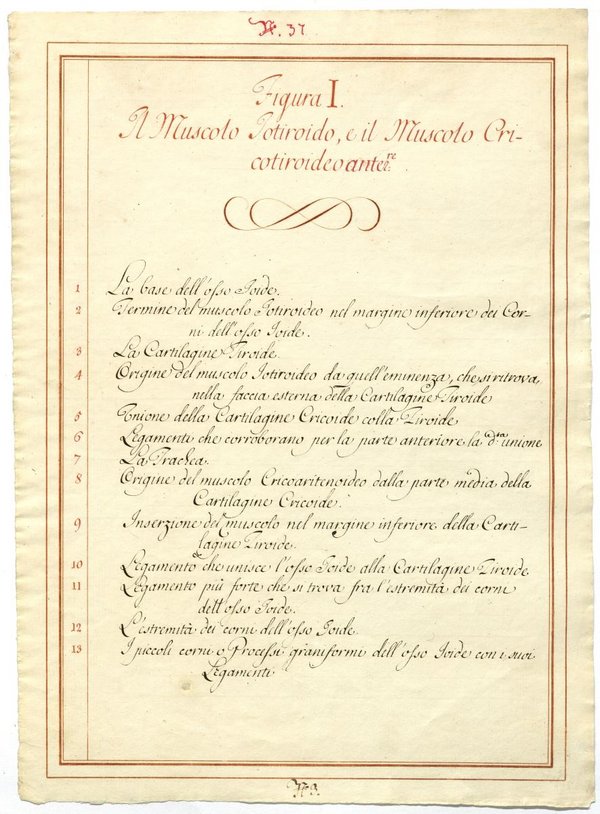 N. 37
Figura I.
Il Muscolo Jotiroido, e il Muscolo Cri-
cotiroideo anter.re
1 La base dell'osso Joide.
2 Termine del muscolo Jotiroideo nel margine inferiore dei Cor-
ni dell'osso Joide.
3 La Cartilagine Tiroide.
4 Origine del muscolo Jotiroideo da quell'eminenza, che si ritrova
nella faccia esterna della Cartilagine Tiroide
5 Unione della Cartilagine Cricoide colla Tiroide
6 Legamenti che corroborano per la parte anteriore la d.ta unione
7 La Trachea.
8 Origine del muscolo Cricoaritenoideo dalla parte media della
Cartilagine Cricoide.
9 Inserzione del muscolo nel margine inferiore della Carti-
lagine Tiroide.
10 Legamento che unisce l'osso Joide alla Cartilagine Tiroide
11 Legamento più forte che si trova fra l'estremità dei corni
dell'osso Joide.
12 L'estremità dei corni dell'osso Joide.
13 I piccoli corni o Processi graniformi dell'osso Joide con i suoi
Legamenti